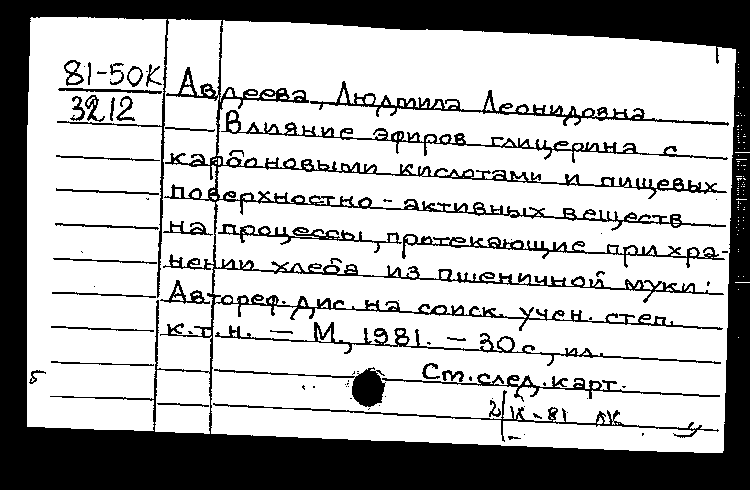 81-50К
3212
Авдеева, Людмила Леонидовна
Влияние эфиров глицерина с
карбоновыми кислотами и пищевых
поверхностно-активных веществ
на процессы, протекающие при хра-
нении хлеба из пшеничной муки:
Автореф. дис. на соиск. учен. степ.
к.т.н. — М., 1981. — 30 с., ил.
См. след. карт.
б